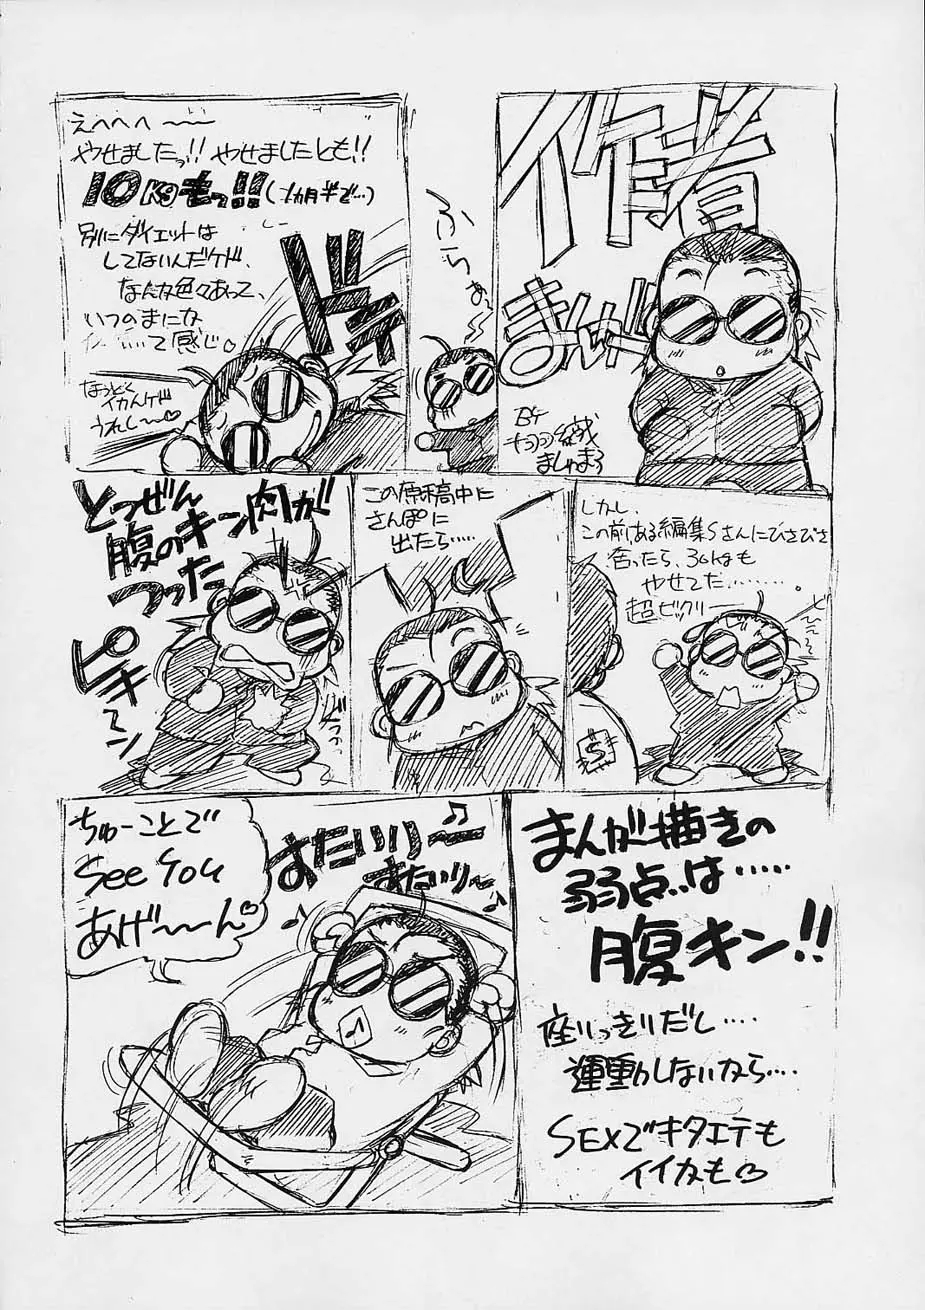 作者
まんが
BY
ふらぁ
えへへへ〜〜
やせましたっ!! やせましたとも!!
10Kgもっ!!(1カ月半で…)
別にダイエットは
してないんだケド、
なんな色々あって、
いつのまにな
て感じ♡
ドキ
なっとく
イカんケド
うれし〜〜♡
しかし、
この前、ある編集Sさんにひさびさ
会ったら、30kgも
やせてた………。
超ビックリー
S
この原稿中に
さんぽに
出たら……
とつぜん
腹のキン肉が
つった
ピキーン
まんが描きの
弱点は……
腹キン!!
座りっきりだし……
運動しないから…
SEXでキタエテも
イイカも♡
おたいリ〜
またいリ〜
ちゅーことで
See You
あげ〜〜ん♡